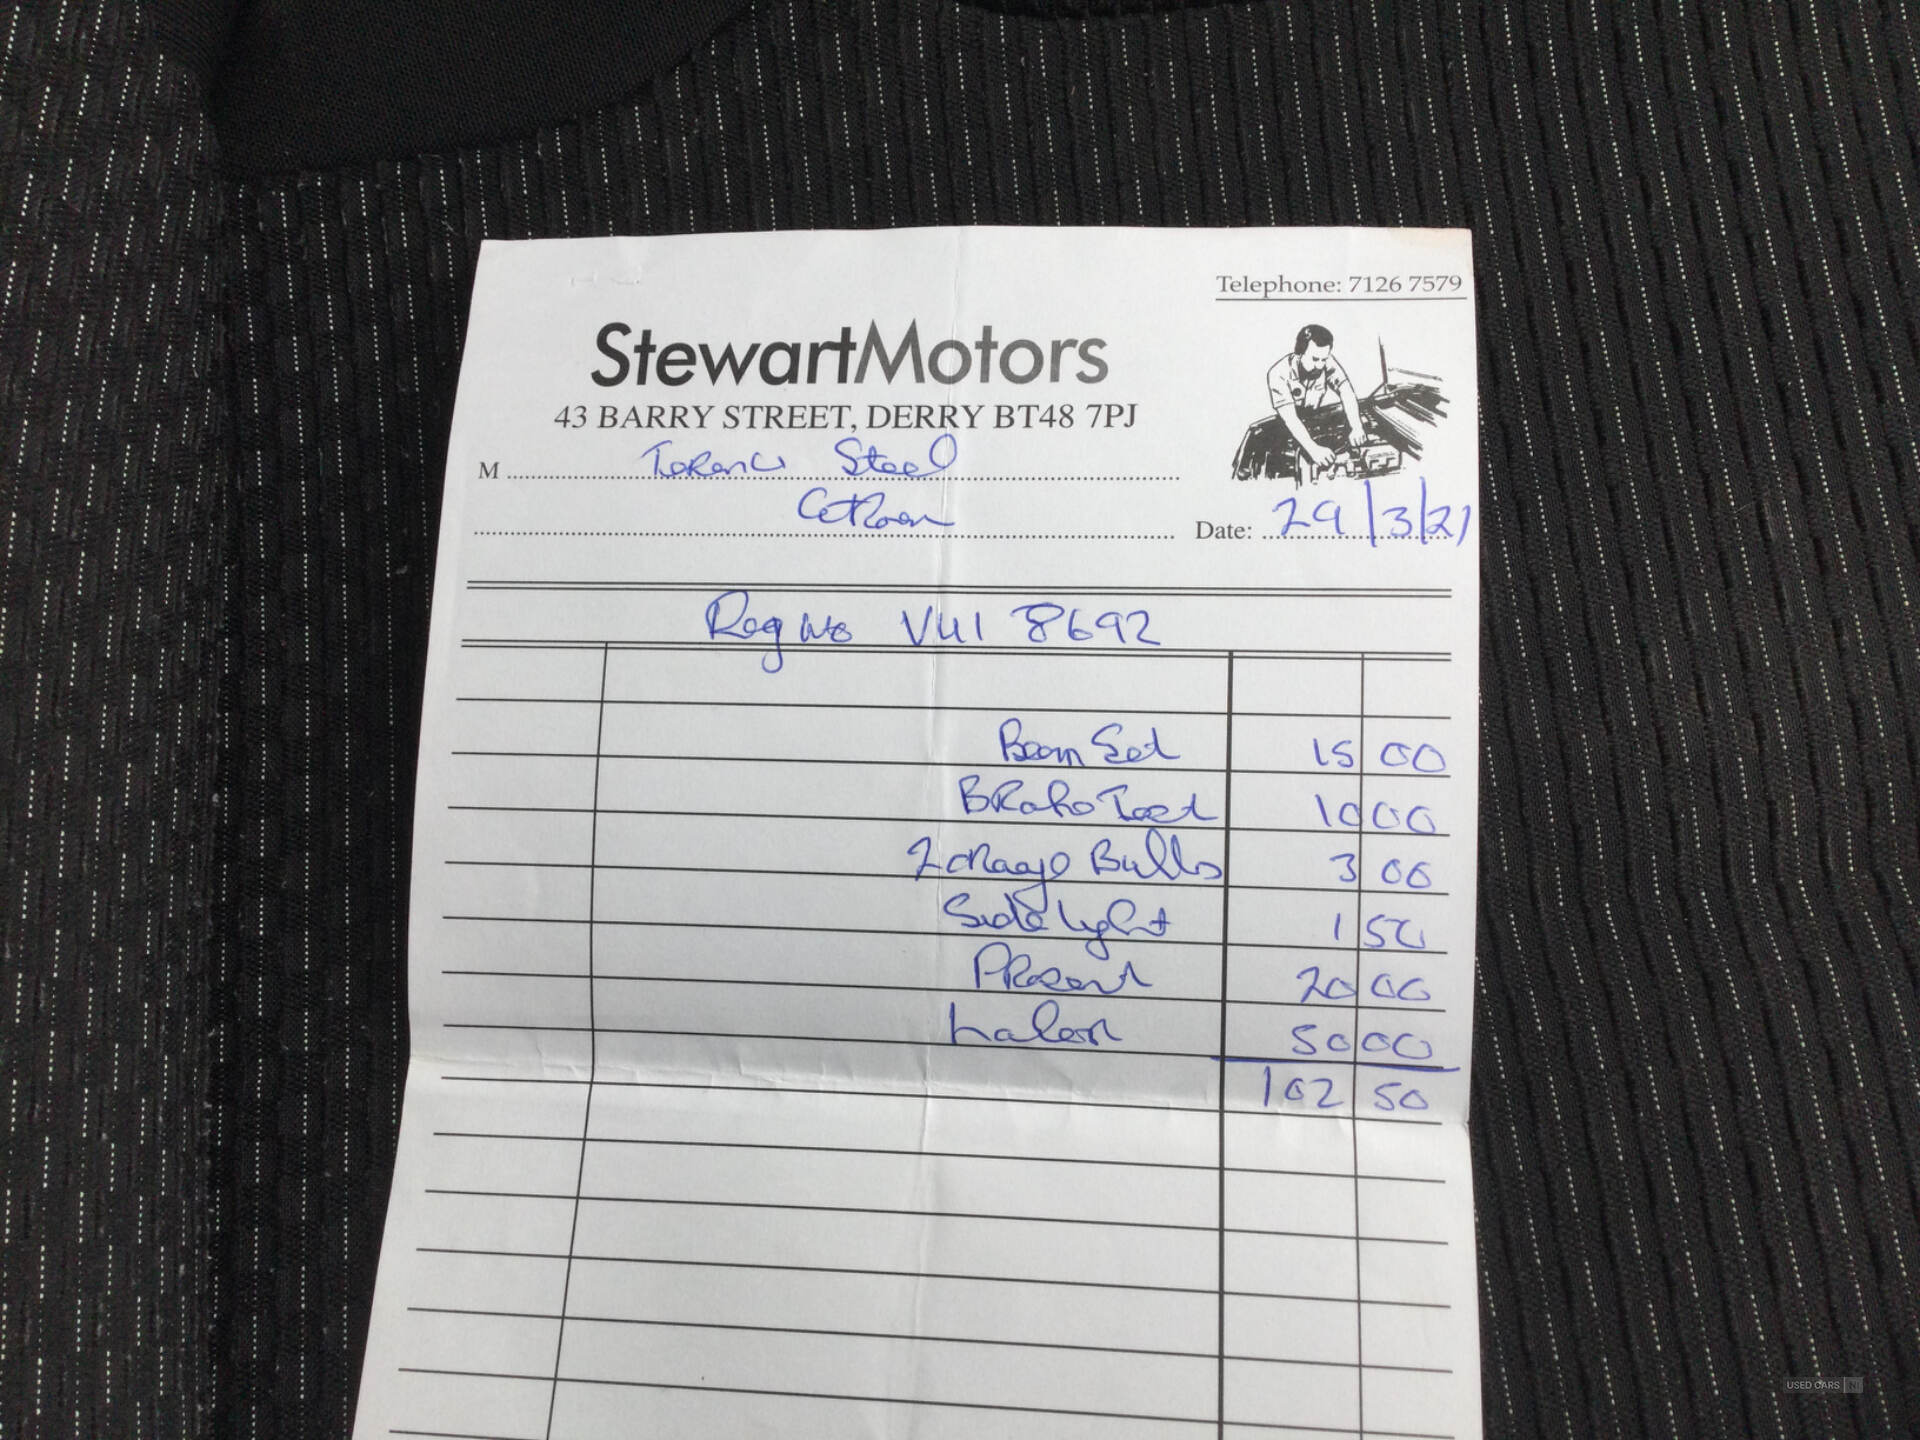 Telephone: 7126 7579
StewartMotors
43 BARRY STREET, DERRY BT48 7PJ
M Terence Steel
Citroen
Date: 29/3/21
Reg No VUI 8692
Beam Set 15 00
Brake Test 10 00
2 orange Bulbs 3 00
Side light 1 50
Present 20 00
Labour 50 00
102 50
USED CARS NI